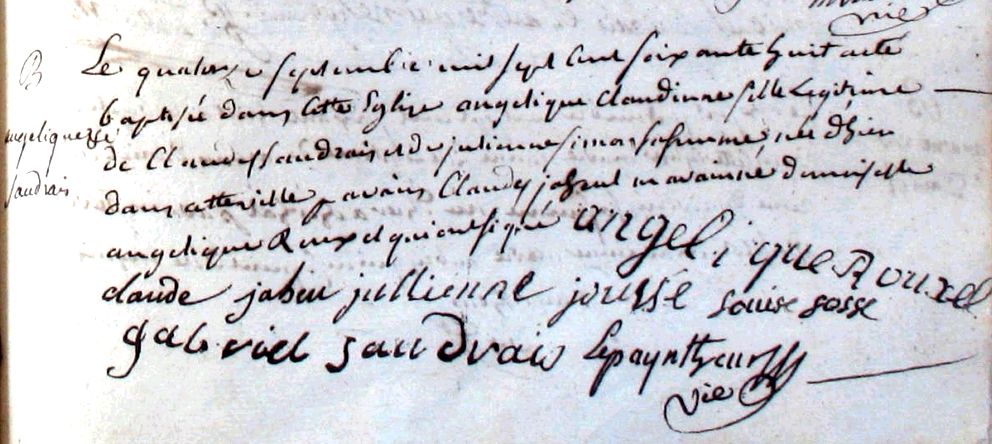 vie
B
angelique
Jaudrais
Le quatorze septembre mil sept cent soixante huit a eté
baptisée dans cette Eglise angelique Claudinne fille Legitime
de Claude Jaudrais et de julienne simon sa femme, née d'hier
dans cette ville parains Claude jaheul maraine demoiselle
angelique Rouxel qui ont signé angelique Rouxel
claude jaheu jullienne jousse Louise gosse
gabriel jaudrais Lepaynteur
vic